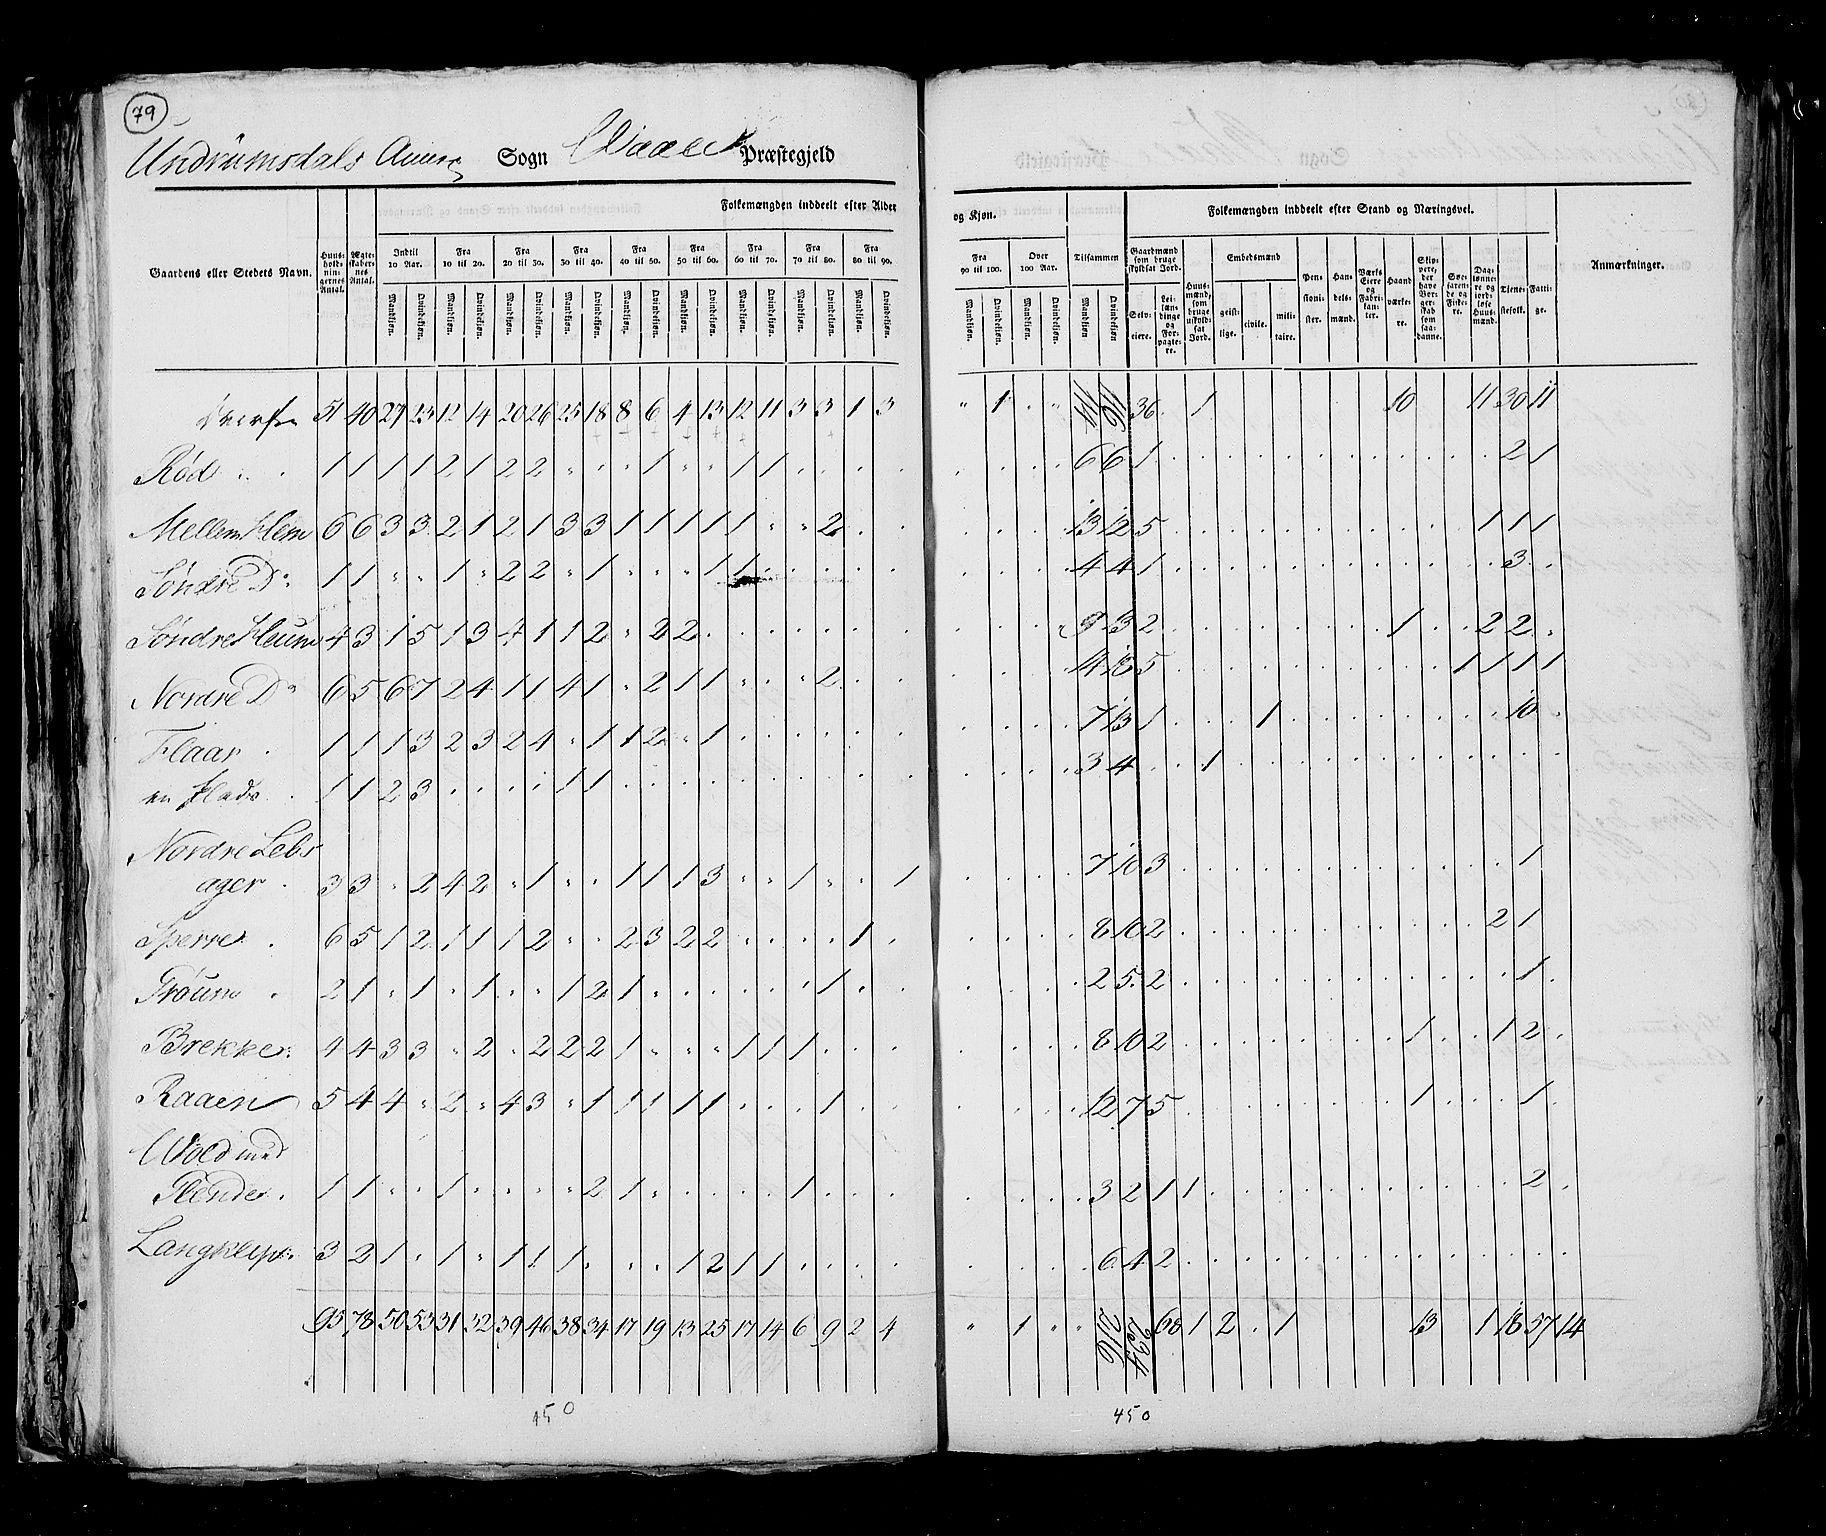 79
Undrumsdals Annex Sogn Vaale Præstegjeld
Folkemængden inddeelt efter Alder og Kjøn.
Folkemængden inddeelt efter Stand og Næringsvei.
Gaardens eller Stedets Navn.
Huusholdningernes Antal.
Ægteskabernes Antal.
Indtil 10 Aar.
Fra 10 til 20.
Fra 20 til 30.
Fra 30 til 40.
Fra 40 til 50.
Fra 50 til 60.
Fra 60 til 70.
Fra 70 til 80.
Fra 80 til 90.
Fra 90 til 100.
Over 100 Aar.
Tilsammen
Mandkjøn. Qvindekjøn.
Gaardmænd som bruge skyldsat Jord.
Selveiere.
Leilændinge og Forpagtere.
Huusmænd, som bruge uskyldsat Jord.
Embedsmænd
geistlige. civile. militaire.
Pensionister.
Handelsmænd.
Værks Eiere og Fabrikanter.
Haandværkere.
Skippere, der have Borgerskab som saadanne.
Søefarende og Fiskere.
Daglønnere og jordløse Huusmænd.
Tjenestefolk.
Fattige.
Anmærkninger.
51 40 27 23 12 14 20 26 25 18 8 6 4 13 12 11 3 3 1 3 " 1 36 1 10 11 30 11
Rød 1 1 1 1 2 1 2 2 1 1 1 6 6 1 2 1
Mellem Hem 6 6 3 3 2 1 2 1 3 3 1 1 1 1 1 2 13 12 5 1 1 1
Søndre Do 1 1 1 2 2 1 1 1 4 4 1 3
Søndre Heum 4 3 1 5 1 3 4 1 1 2 2 2 9 13 2 1 2 2
Nordre Do 6 5 6 7 2 4 1 1 4 1 2 1 1 2 14 18 5 1 1 1 1
Flaar 1 1 1 3 2 3 2 4 1 1 2 1 7 13 1 1 10
en Plads 1 1 2 3 1 1 3 4 1
Nordre Lebs
ager 3 3 2 4 2 1 1 1 1 3 1 1 7 10 3 1
Sperre 6 5 1 2 1 1 1 2 2 3 2 2 1 8 10 2 2 1
Trøum 2 1 1 1 1 2 1 1 2 5 2 1
Brekke 4 4 3 3 2 2 2 2 1 1 1 1 8 10 2 1 1 2
Raaen 5 4 4 2 4 3 1 1 1 1 1 1 12 7 5 1 1
Wold med
1 1 1 2 1 1 3 2 1 1 2
Langklep 3 2 1 1 1 1 1 1 2 1 1 6 4 2
95 78 50 53 31 32 39 46 38 34 17 19 13 25 17 14 6 9 2 4 " 1 216 234 68 1 2 1 13 1 18 57 14
450
450